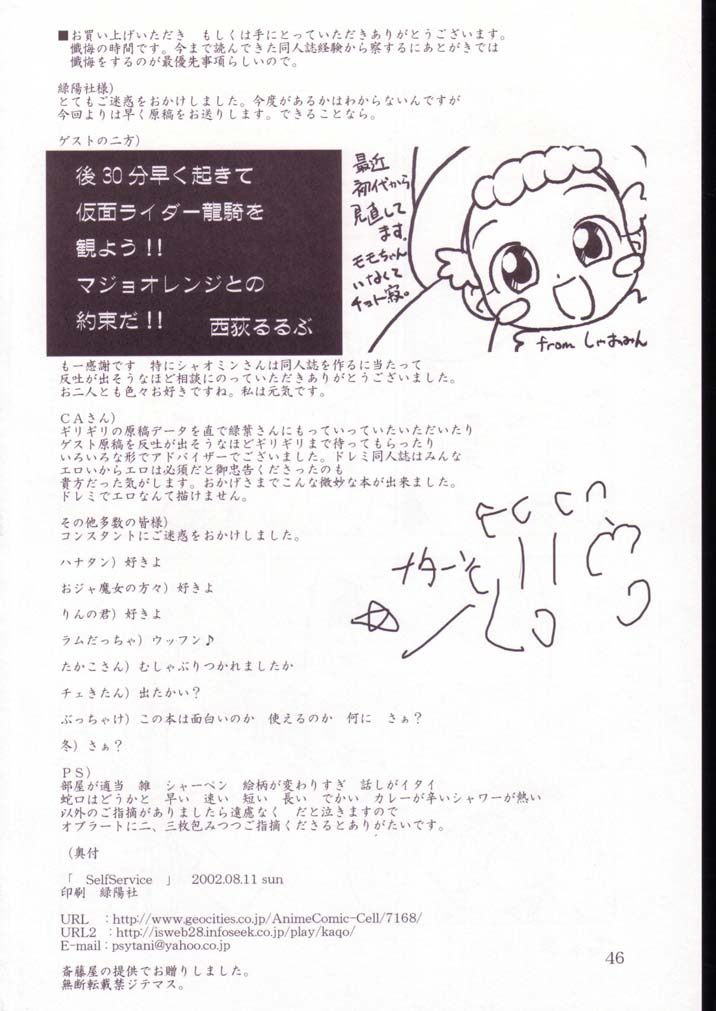 ■お買い上げいただき　もしくは手にとっていただきありがとうございます。
懺悔の時間です。今まで読んできた同人誌経験から察するにあとがきでは
懺悔をするのが最優先事項らしいので。
緑陽社様）
とてもご迷惑をおかけしました。今度があるかはわからないんですが
今回よりは早く原稿をお送りします。できることなら。
ゲストの二方）
後30分早く起きて
仮面ライダー龍騎を
観よう!!
マジョオレンジとの
約束だ!!　西荻るるぶ
最近
初代から
見直して
ます。
モモちゃん
いなくて
チョト寂。
from しゃおみん
も一感謝です　特にシャオミンさんは同人誌を作るに当たって
反吐が出そうなほど相談にのっていただきありがとうございました。
お二人とも色々お好きですね。私は元気です。
ＣＡさん）
ギリギリの原稿データを直で緑葉さんにもっていっていたいただいたり
ゲスト原稿を反吐が出そうなほどギリギリまで待ってもらったり
いろいろな形でアドバイザーでございました。ドレミ同人誌はみんな
エロいからエロは必須だと御忠告くださったのも
貴方だった気がします。おかげさまでこんな微妙な本が出来ました。
ドレミでエロなんて描けません。
その他多数の皆様）
コンスタントにご迷惑をおかけしました。
ハナタン）好きよ
おジャ魔女の方々）好きよ
りんの君）好きよ
ラムだっちゃ）ウッフン♪
たかこさん）むしゃぶりつかれましたか
チェきたん）出たかい？
ぶっちゃけ）この本は面白いのか　使えるのか　何に　さぁ？
冬）さぁ？
ＰＳ）
部屋が適当　雑　シャーペン　絵柄が変わりすぎ　話しがイタイ
蛇口はどうかと　早い　速い　短い　長い　でかい　カレーが辛いシャワーが熱い
以外のご指摘がありましたら遠慮なく　だと泣きますので
オブラートに二、三枚包みつつご指摘くださるとありがたいです。
（奥付
「　SelfService　」　2002.08.11 sun
印刷　緑陽社
URL　: http://www.geocities.co.jp/AnimeComic-Cell/7168/
URL2　: http://isweb28.infoseek.co.jp/play/kaqo/
E-mail : psytani@yahoo.co.jp
斎藤屋の提供でお贈りしました。
無断転載禁ジテマス。
46